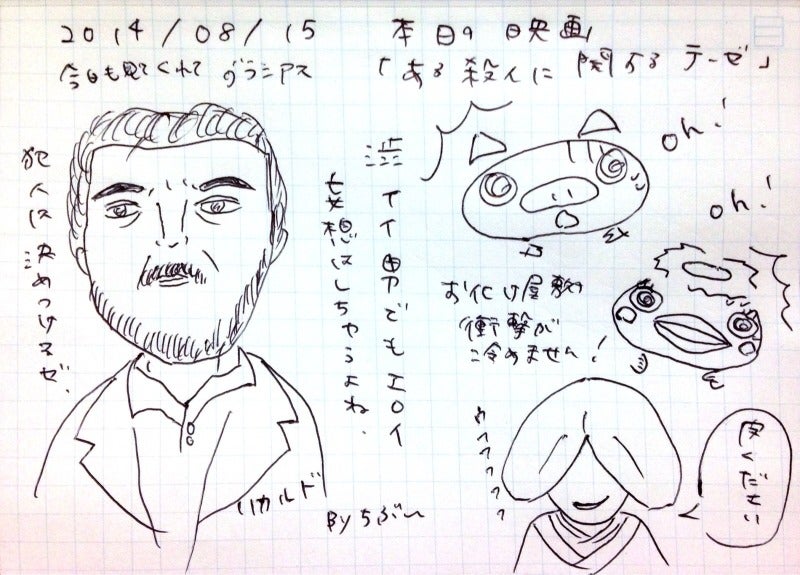 2014/08/15
本日の映画
今日も見てくれてグラシアス
「ある殺人に関するテーゼ」
犯人は決めつけるぜ.
渋イイ男でもエロイ
妄想はしちゃうよね.
oh!
oh!
お化け屋敷の
衝撃が
冷めません!
リカルド
By ちぶ〜
皮ください